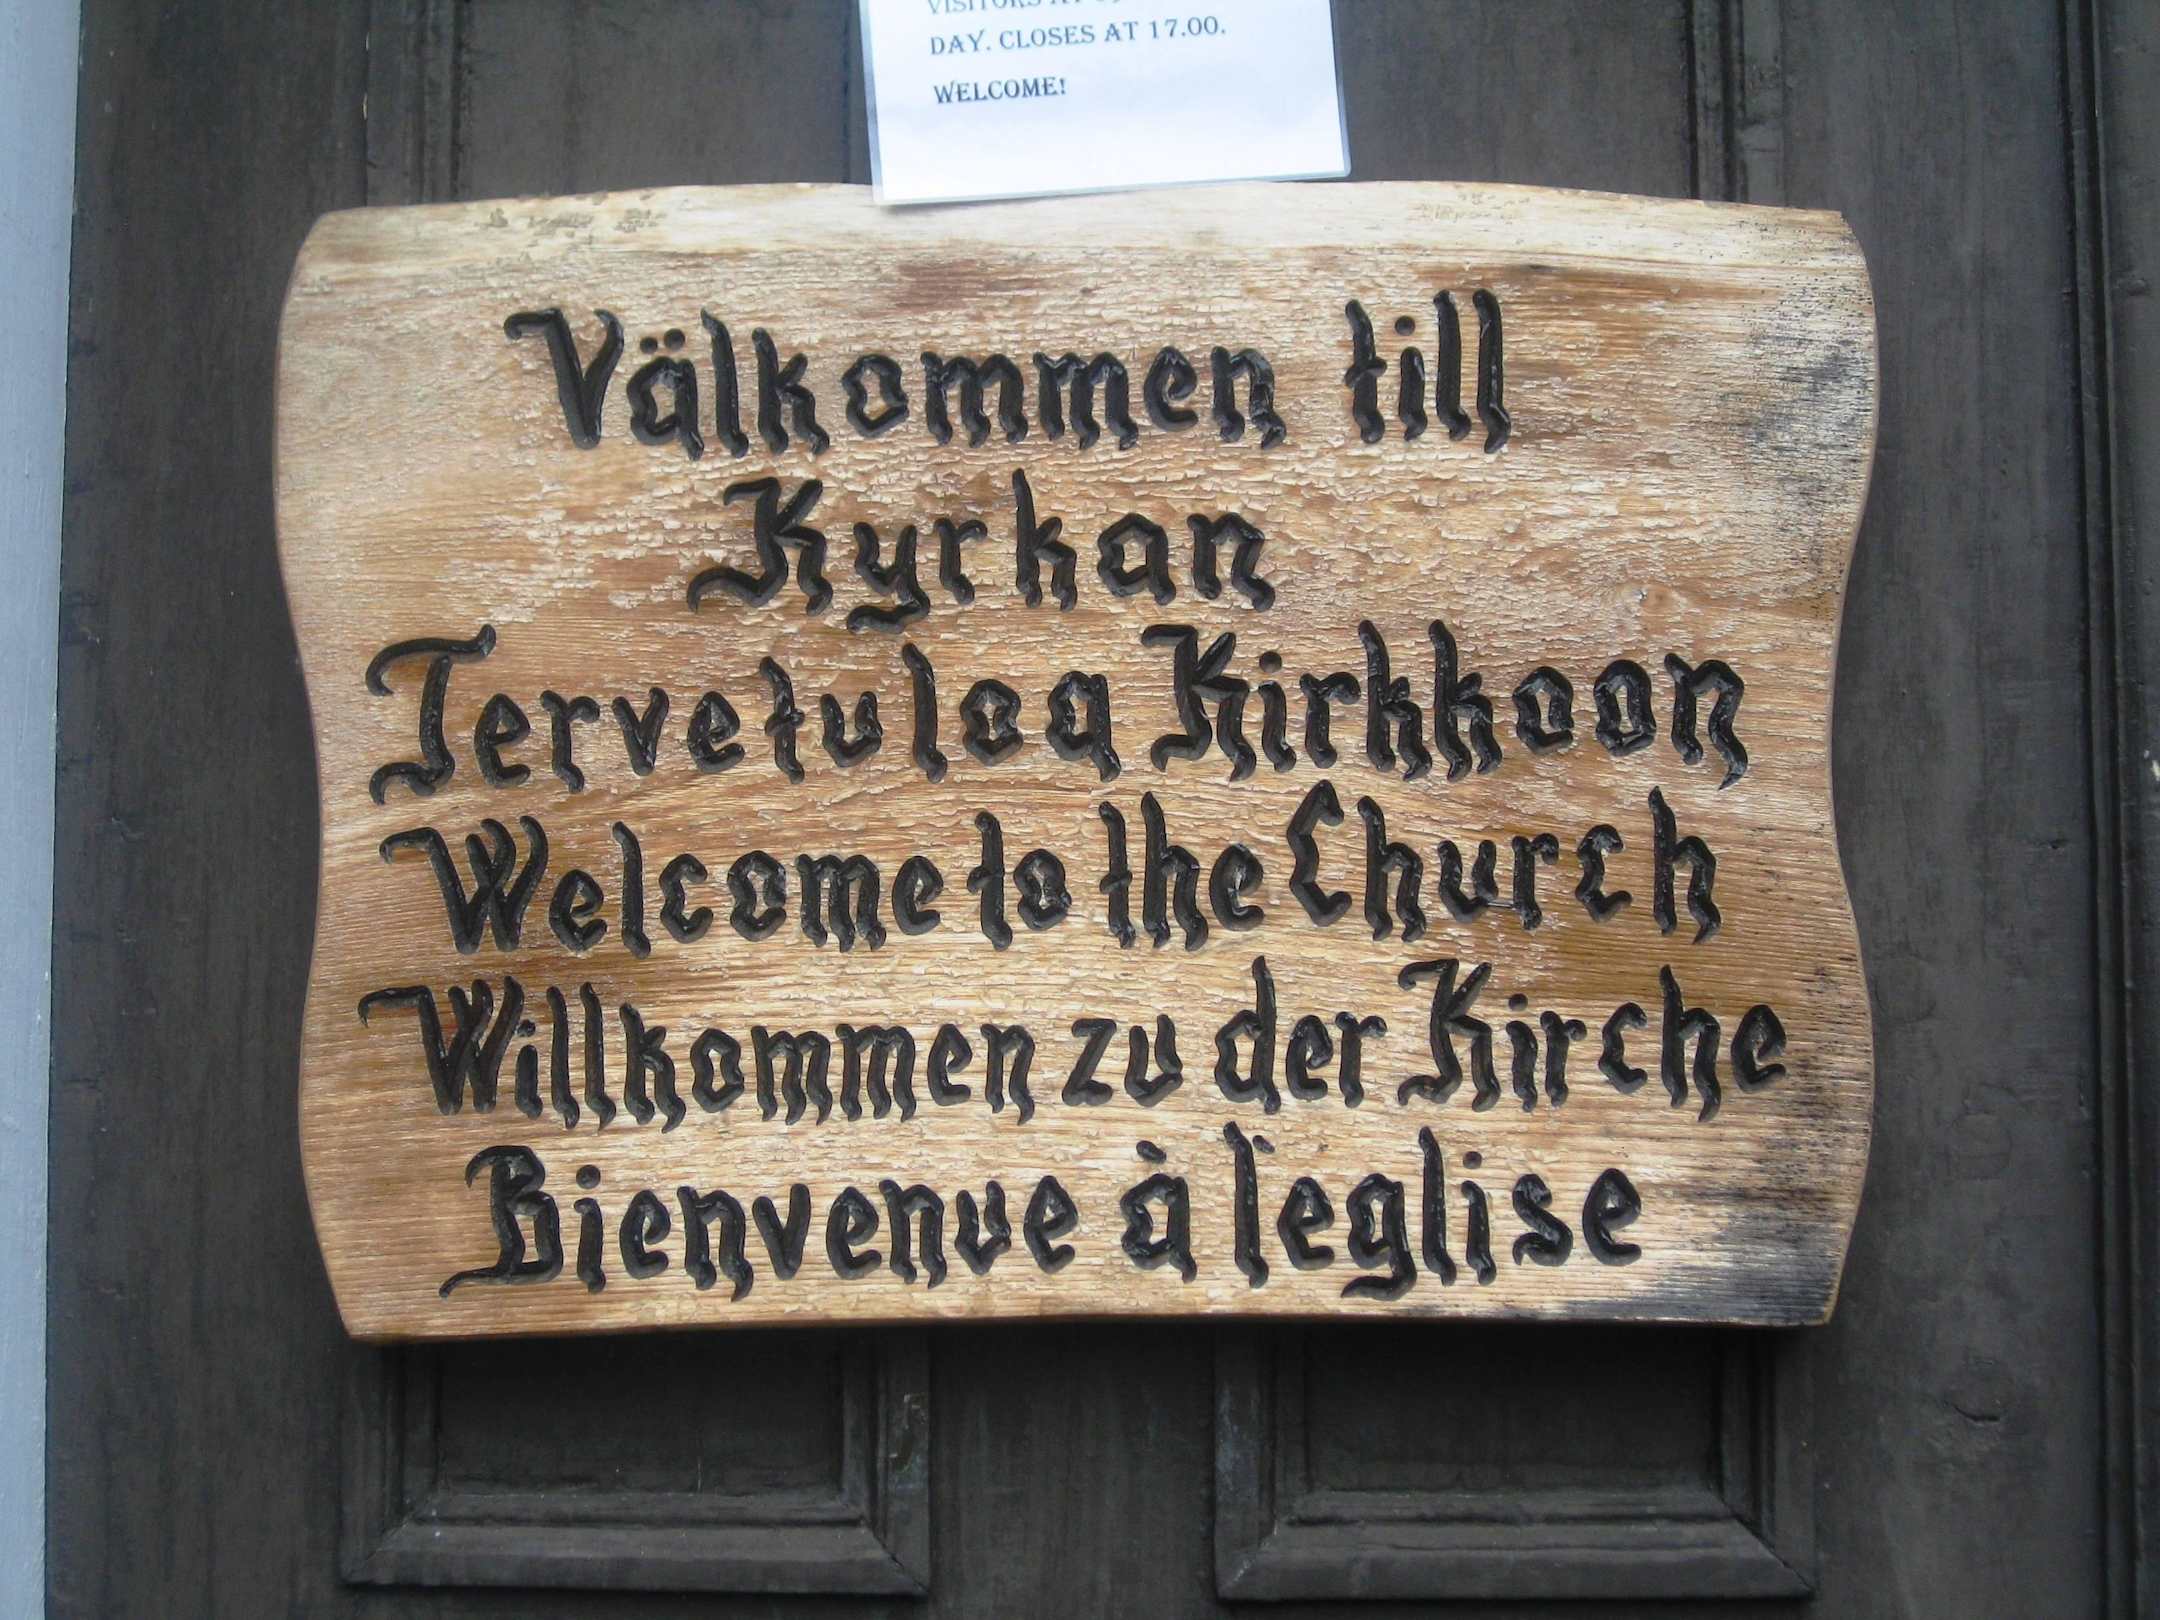 VISITORS AT
DAY. CLOSES AT 17.00.
WELCOME!
Välkommen till
Kyrkan
Tervetuloa Kirkkoon
Welcome to the Church
Willkommen zu der Kirche
Bienvenue à l'eglise